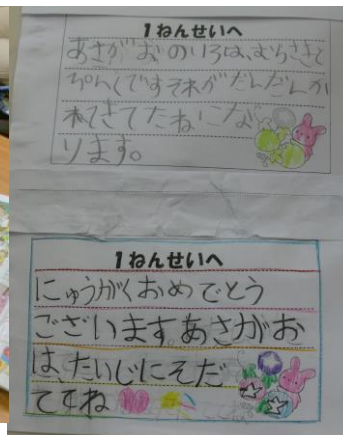 1ねんせいへ
あさがおのいろは、むらさきと
ぴんくですそれがだんだんか
れてきてたねにな
ります。
1ねんせいへ
にゅうがくおめでとう
ございます。あさがお
は、たいじにそだ
ててね